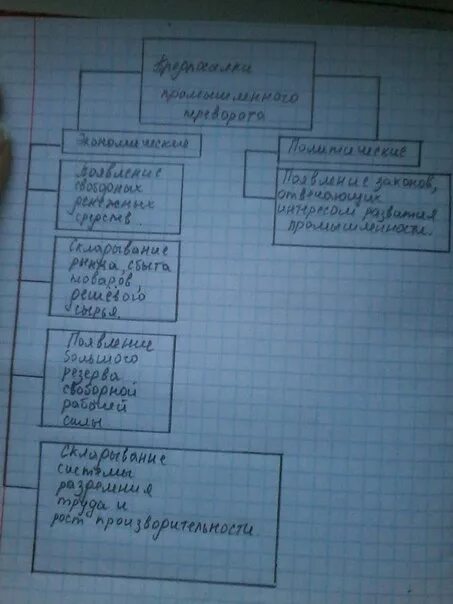 Предпосылки
промышленного
переворота
Экономические
Политические
Появление
свободных
денежных
средств.
Появление законов,
отвечающих
интересом развития
промышленности.
Складывание
рынка, сбыта
товаров,
дешёвого
сырья.
Появление
большого
резерва
свободной
рабочей
силы
Складывание
системы
разделения
труда и
рост производительности.